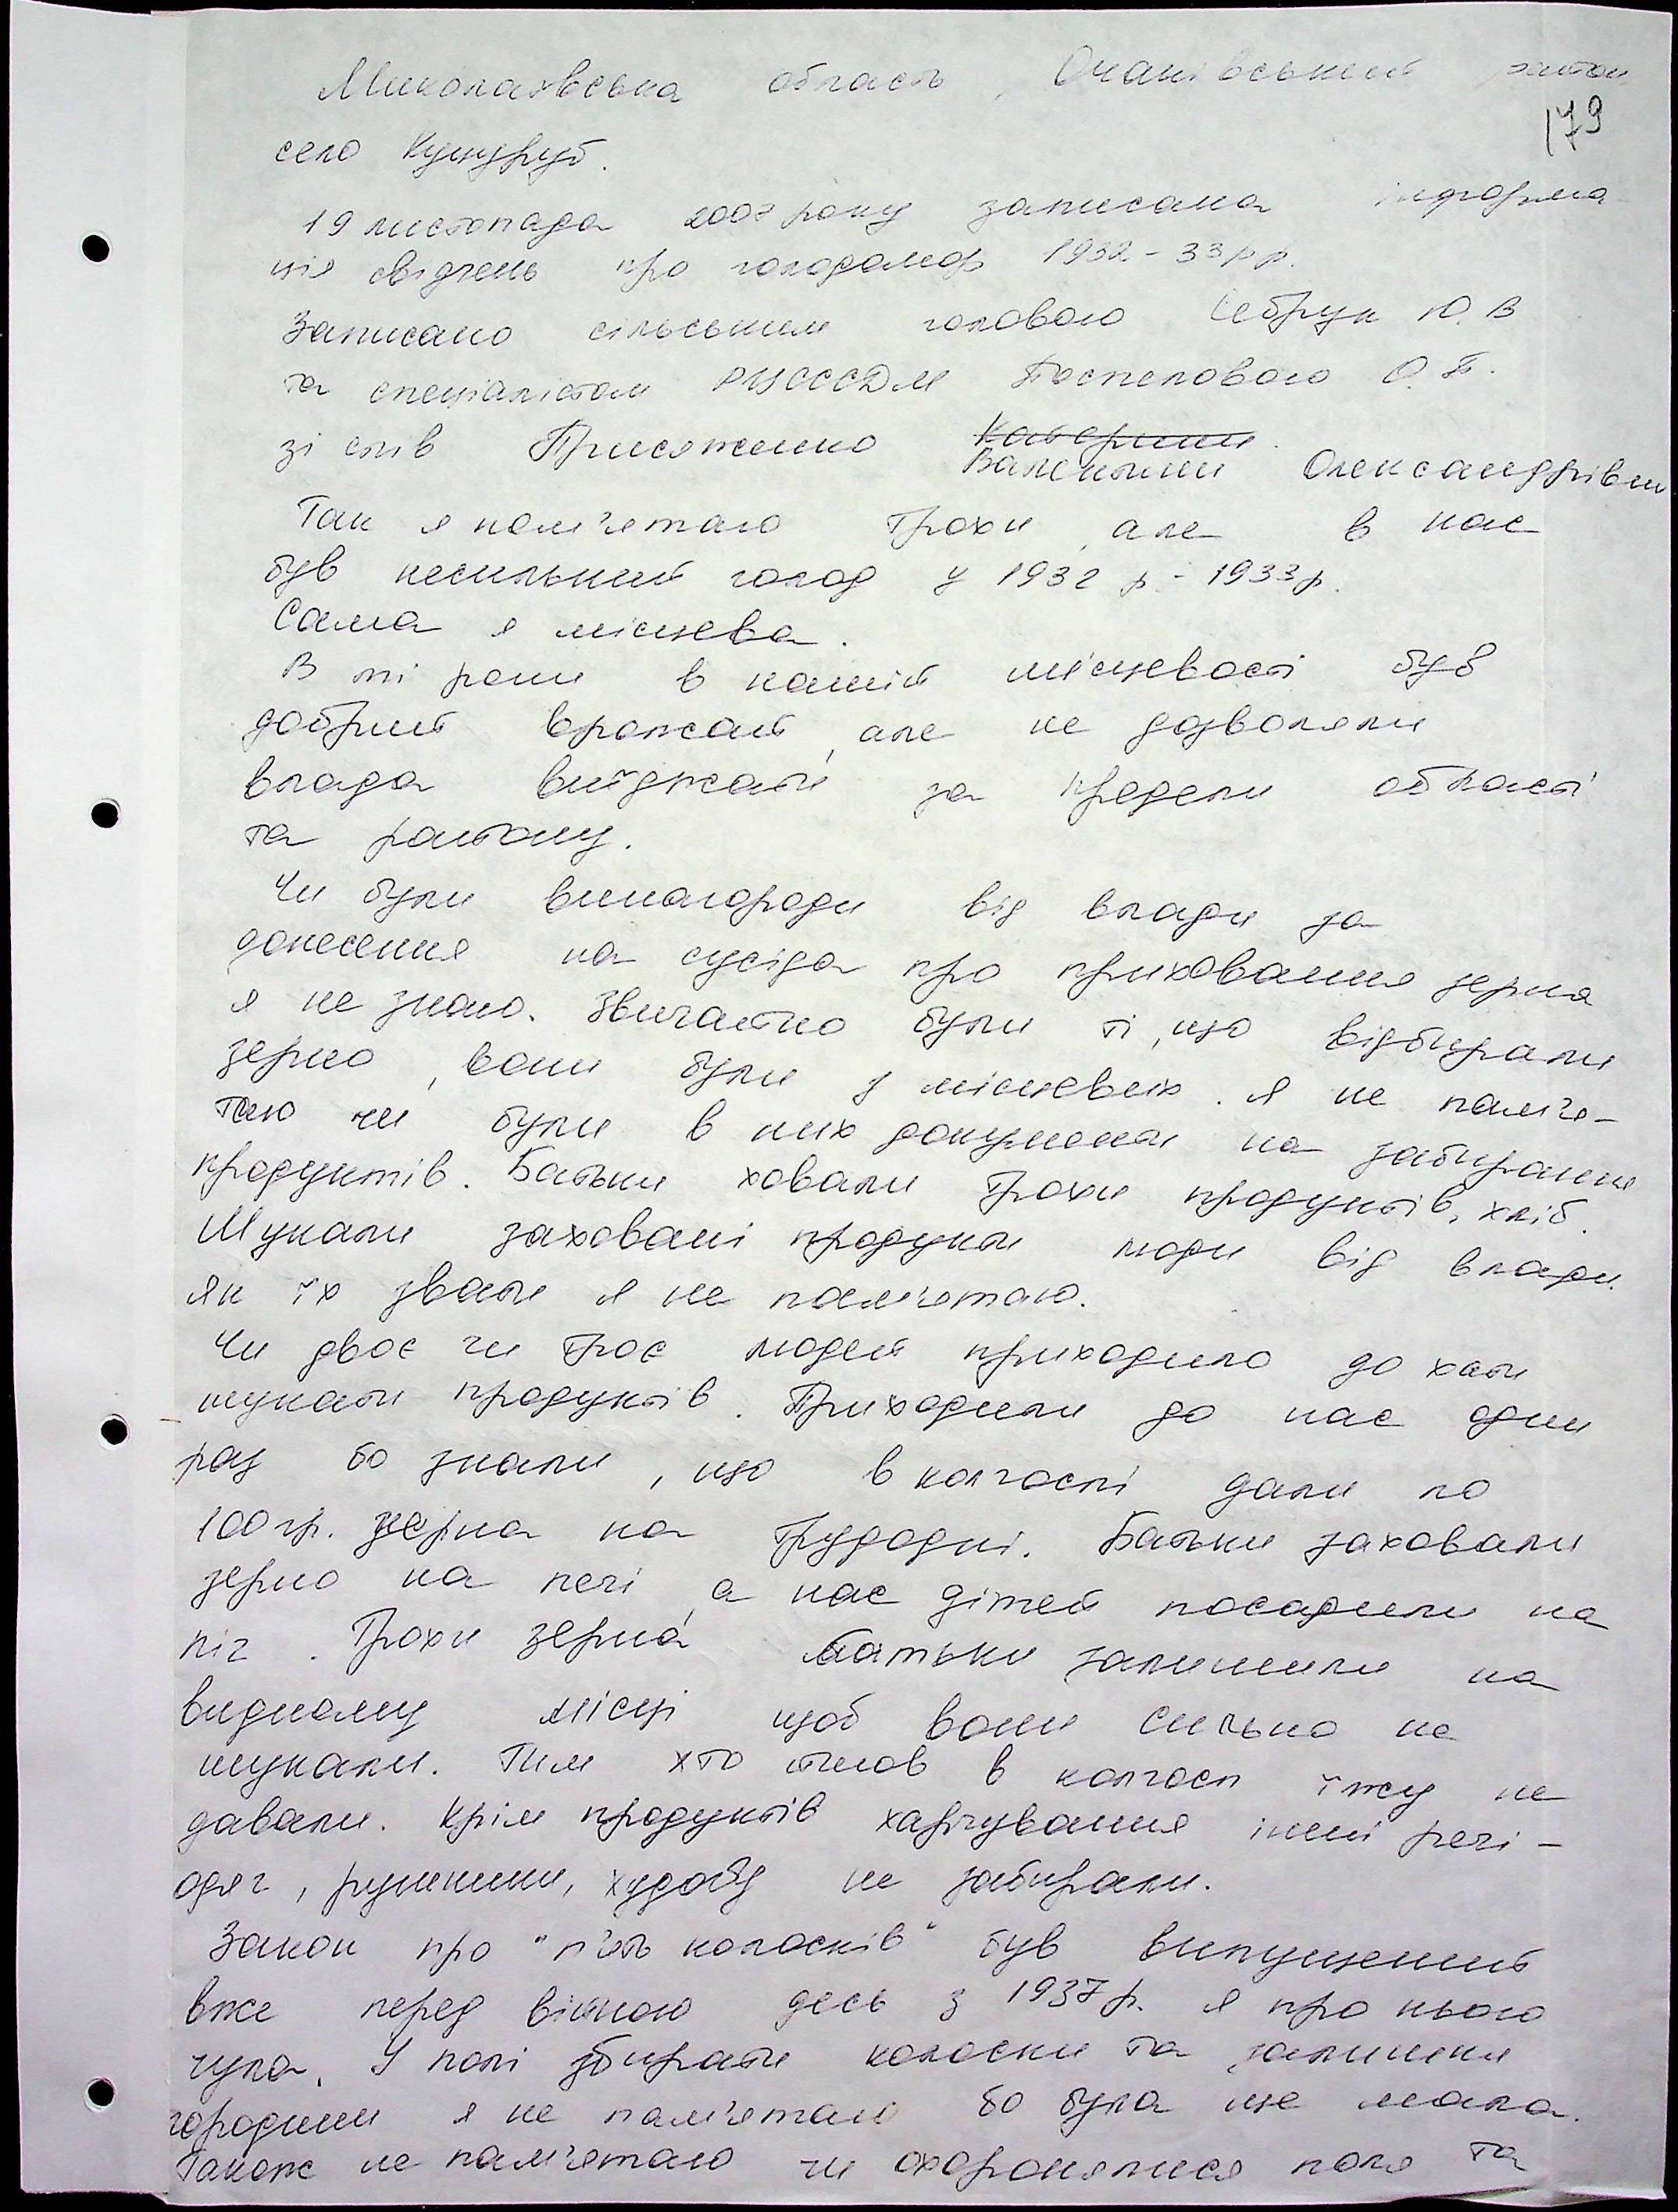 Миколаївська область, Очаківський район
179
село Куцуруб.
19 листопада 2007 року записана інформа
ція свідчень про голодомор 1932-33 р р.
Записано сільським головою Себрук Ю. В
та спеціалістом РЦСССДМ Поспеловою О. П.
зі слів Присяженко Катерини
Валентини Олександрівни
Так я пам'ятаю трохи, але в нас
був несильний голод у 1932 р. - 1933 р.
Сама я місцева.
В ті роки в нашій місцевості був
добрий врожай, але не дозволяли
влада виїджати за предели області
та району.
Чи були винагороди від влади за
донесення на сусіда про приховання зерна
я не знаю. Звичайно були ті, що відбирали
зерно, вони були з місцевих. я не пам'я-
таю чи були в них документи на забирання
продуктів. Батьки ховали трохи продуктів, хліб.
Шукали заховані продукти люди від влади.
як їх звали я не пам'ятаю.
Чи двоє чи троє людей приходило до хати
шукати продуктів. Приходили до нас один
раз бо знали, що в колгоспі дали по
100 гр. зерна на трудодні. Батьки заховали
зерно на печі, а нас дітей посадили на
піч. Трохи зерна батьки залишили на
видному місці щоб вони сильно не
шукали. Тим хто йшов в колгосп їжу не
давали. Крім продуктів харчування інші речі -
одяг, рушники, худобу не забирали.
Закон про "п'ять колосків" був випущений
вже перед війною десь з 1937 р. я про нього
чула. У полі збирати колоски та залишки
городини я не пам'ятаю бо була ще мала.
Також не пам'ятаю чи охоронялися поля та